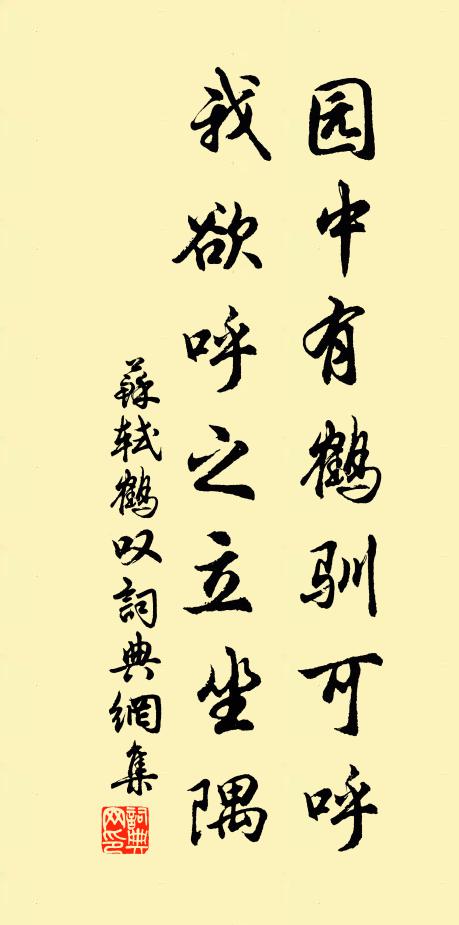 园中有鹤驯可呼
我欲呼之立坐隅
蘇轼鹤叹詞典網集
詞典
网印